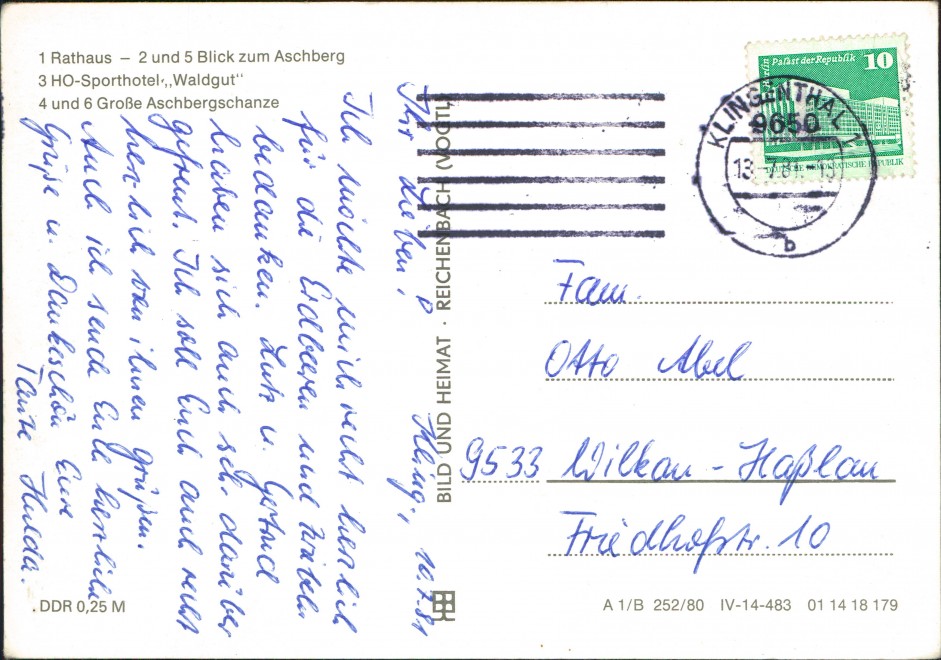 1 Rathaus — 2 und 5 Blick zum Aschberg
3 HO-Sporthotel „Waldgut“
4 und 6 Große Aschbergschanze
Kling., 10.7.81
Ihr Lieben!
Ich möchte mich recht herzlich
für die Erdbeeren und
bedanken. Lutz u. Gertrud
haben sich auch sehr darüber
gefreut. Ich soll Euch auch recht
herzlich von ihnen grüßen.
Auch ich sende Euch herzliche
Grüße u. Dankeschön Eure
Tante Hulda.
DDR 0,25 M
BILD UND HEIMAT · REICHENBACH (VOGTL
Berlin Palast der Republik 10
DEUTSCHE DEMOKRATISCHE REPUBLIK
KLINGENTHAL
9650
13.-7.81.-19
b
Fam.
Otto Abel
9533 Wilkau-Haßlau
Friedhofstr. 10
A 1/B 252/80 IV-14-483 01 14 18 179